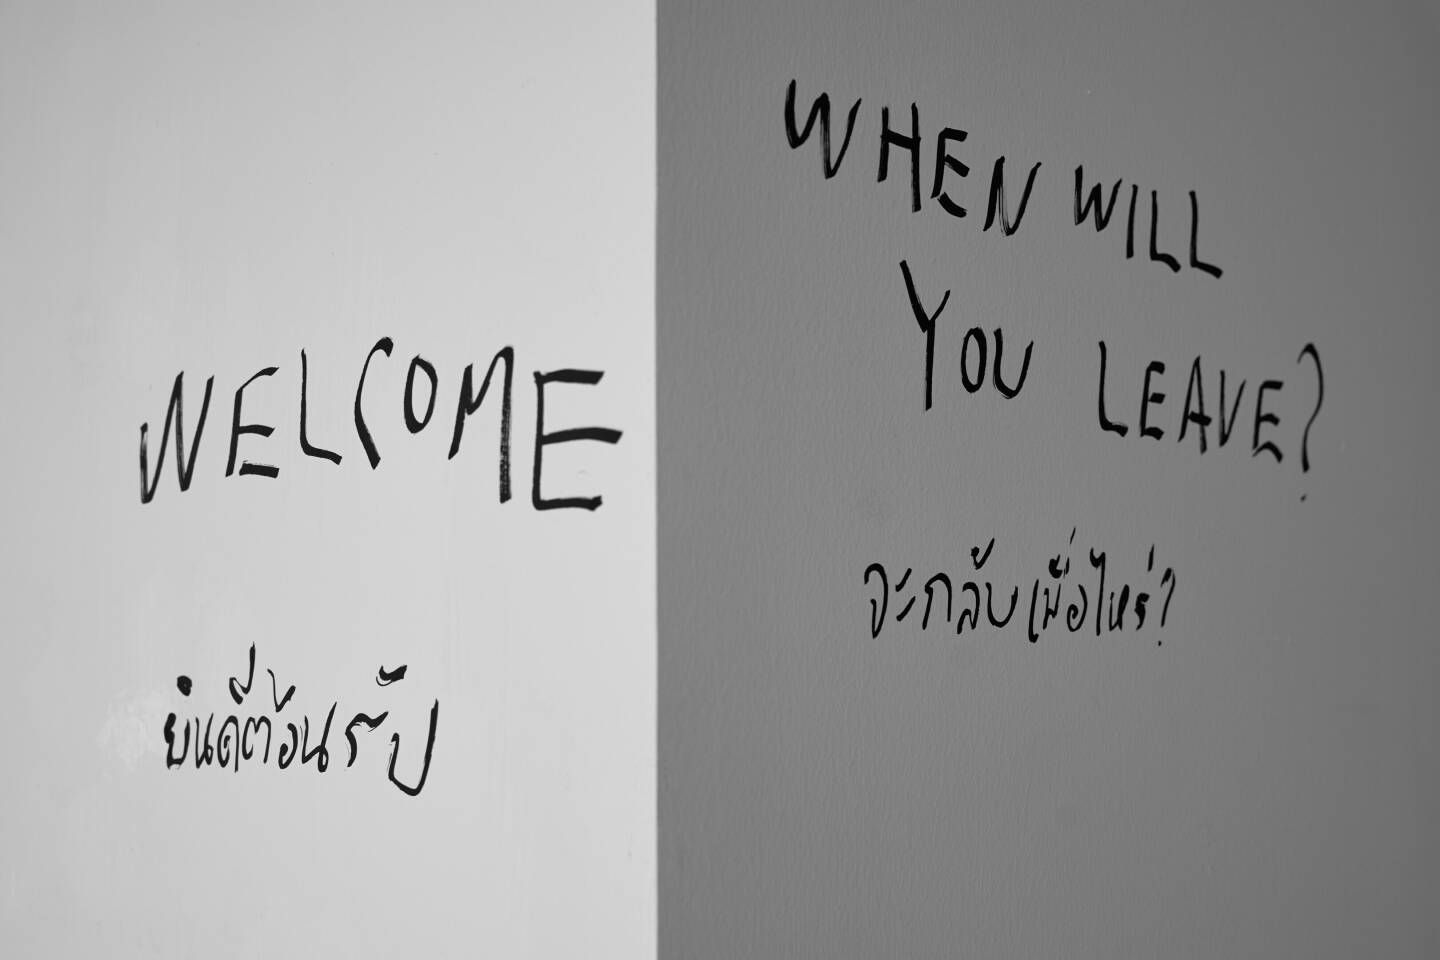 WELCOME
ยินดีต้อนรับ
WHEN WILL
YOU LEAVE?
จะกลับเมื่อไหร่?